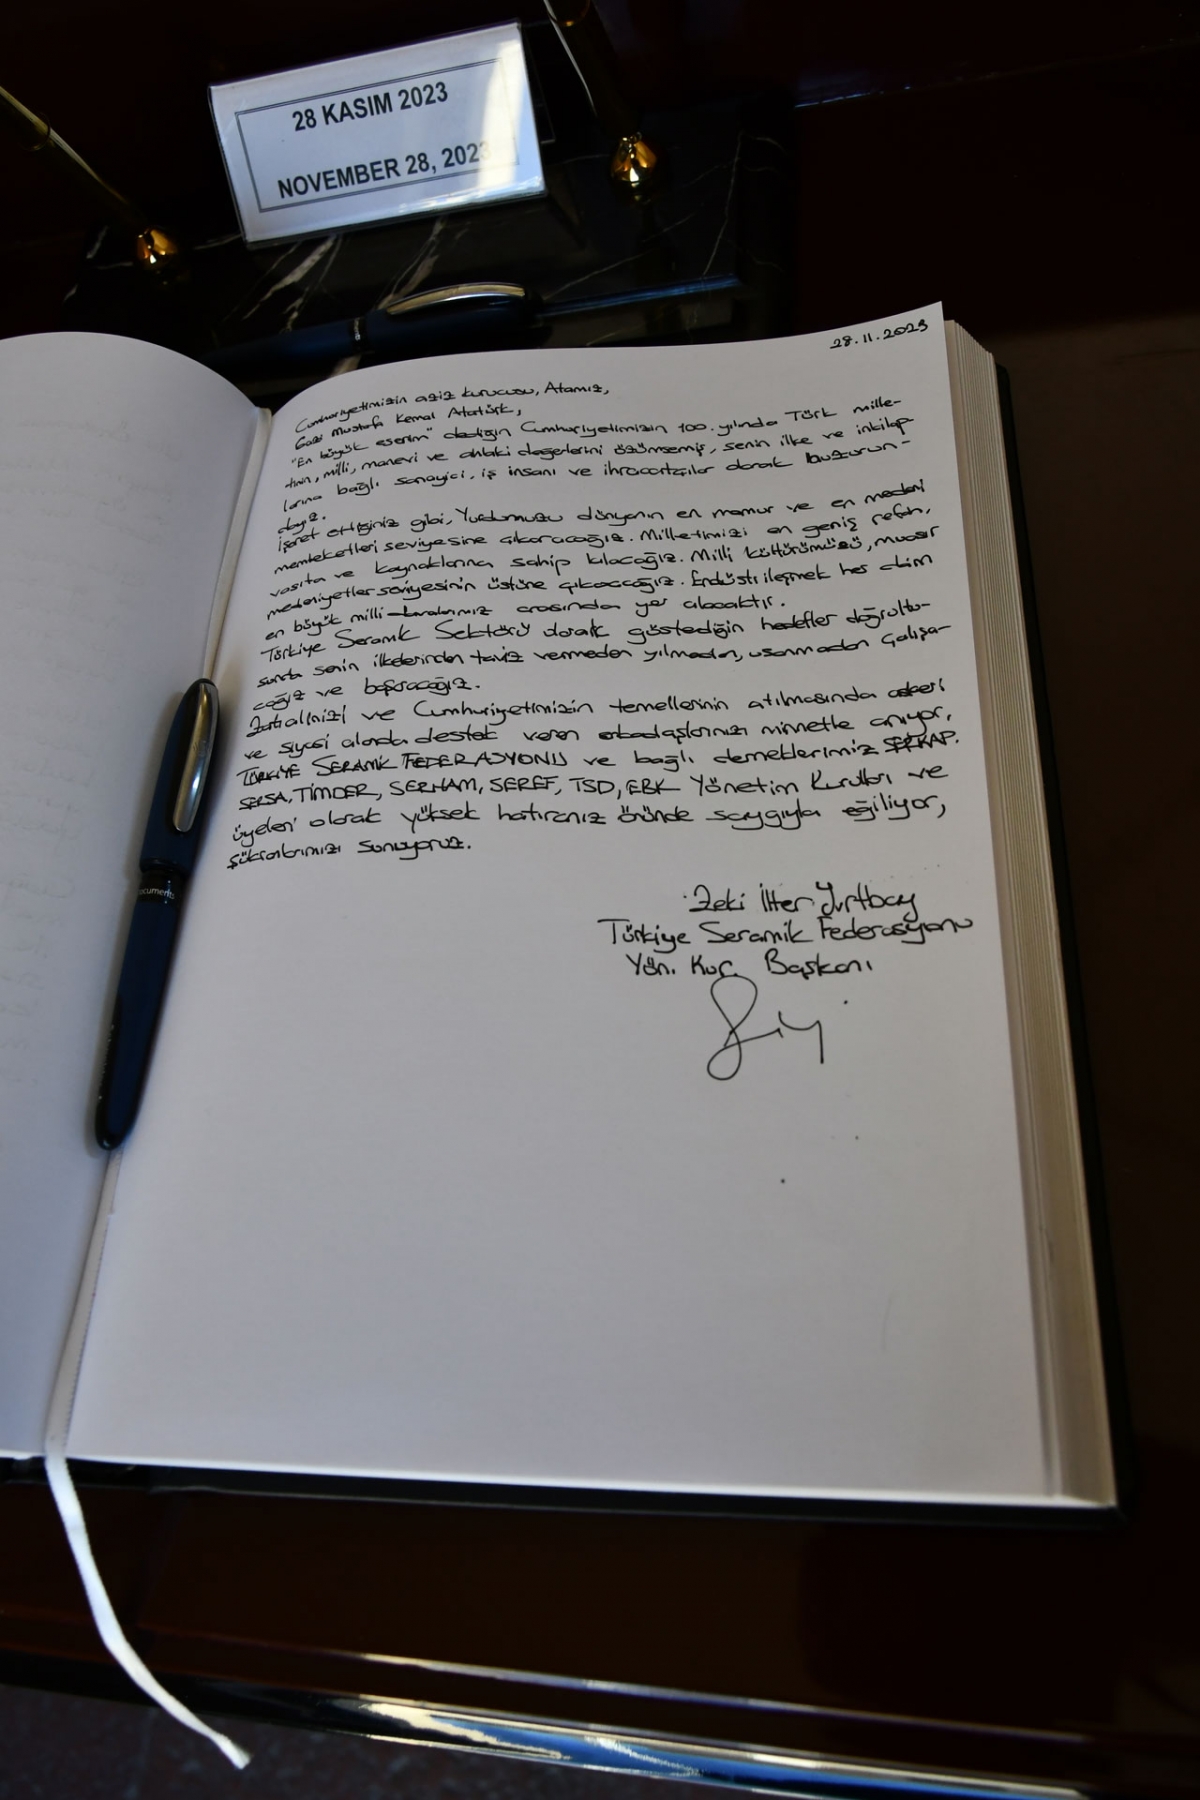 28 KASIM 2023
NOVEMBER 28, 2023
28.11.2023
Cumhuriyetimizin aziz kurucusu, Atamız,
Gazi Mustafa Kemal Atatürk,
"En büyük eserim" dediğin Cumhuriyetimizin 100. yılında Türk mille-
tinin, milli, manevi ve ahlaki değerlerini özümsemiş, senin ilke ve inkilap-
larına bağlı sanayici, iş insanı ve ihracatçılar olarak huzurun-
dayız.
İşaret ettiğiniz gibi, Yurdumuzu dünyanın en mamur ve en medeni
memleketleri seviyesine çıkaracağız. Milletimizi en geniş refah,
vasıta ve kaynaklarına sahip kılacağız. Milli kültürümüzü, muasır
medeniyetler seviyesinin üstüne çıkacağız. Endüstrileşmek her daim
en büyük milli davalarımız arasında yer alacaktır.
Türkiye Seramik Sektörü olarak gösterdiğin hedefler doğrultu-
sunda senin ilkelerinden taviz vermeden yılmadan, usanmadan çalışa-
cağız ve başaracağız.
Zatıalinizi ve Cumhuriyetimizin temellerinin atılmasında askeri
ve siyasi alanda destek veren arkadaşlarınızı minnetle anıyor,
TÜRKİYE SERAMİK FEDERASYONU ve bağlı derneklerimiz SERKAP,
SERSA, TİMDER, SERHAM, SEREF, TSD, EBK Yönetim Kurulları ve
üyeleri olarak yüksek hatıranız önünde saygıyla eğiliyor,
şükranlarımızı sunuyoruz.
Zeki İlter Yurtbay
Türkiye Seramik Federasyonu
Yön. Kur. Başkanı